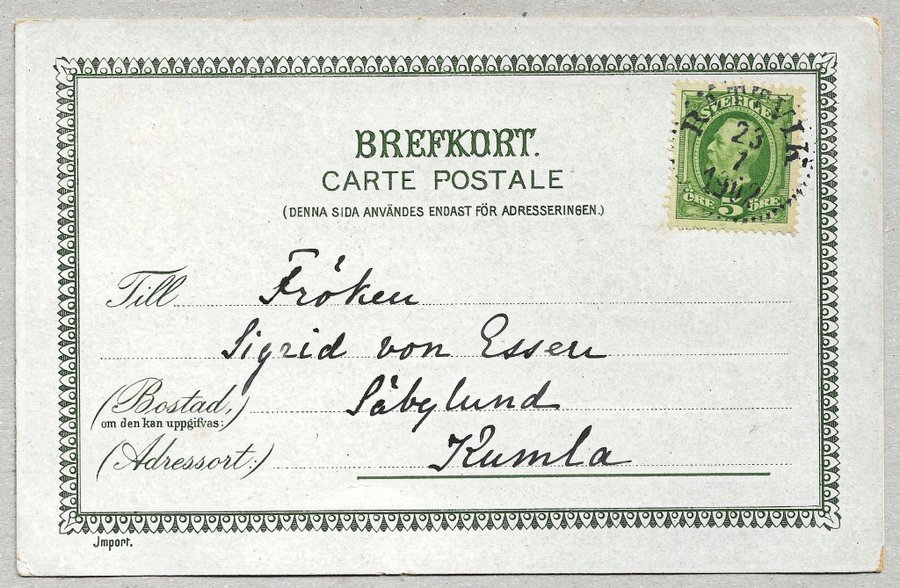 BREFKORT.
CARTE POSTALE
(DENNA SIDA ANVÄNDES ENDAST FÖR ADRESSERINGEN.)
SVERIGE
RÄTTVIK
23
1
1902
ÖRE 5 ÖRE
Till Fröken
Sigrid von Essen
(Bostad,) Säbylund
om den kan uppgifvas:
(Adressort:) Kumla
Import.